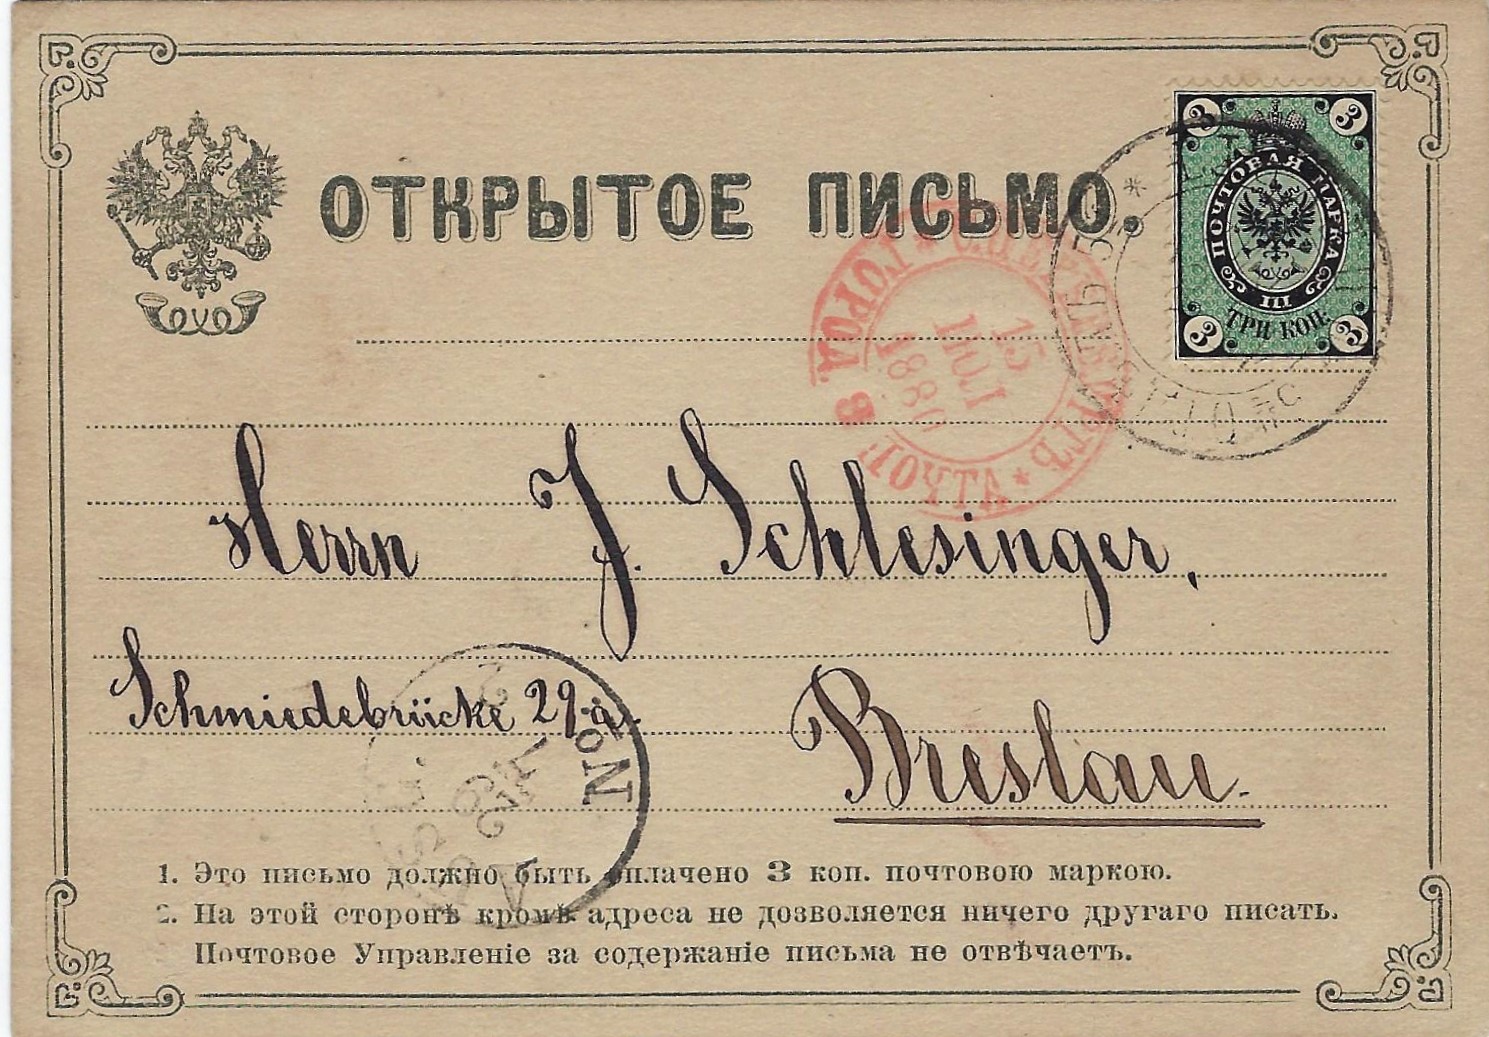 ОТКРЫТОЕ ПИСЬМО.
3 3
ПОЧТОВАЯ МАРКА
III
ТРИ КОП.
3 3
С.ПЕТЕРБУРГЪ * ПОЧТА
ГОРОД.
15
ІЮЛ
1880
Herrn J. Schlesinger,
Schmiedebrücke 29.a.
Breslau.
No
1. Это письмо должно быть оплачено 3 коп. почтовою маркою.
2. На этой сторонѣ кромѣ адреса не дозволяется ничего другаго писать.
Почтовое Управленіе за содержаніе письма не отвѣчаетъ.